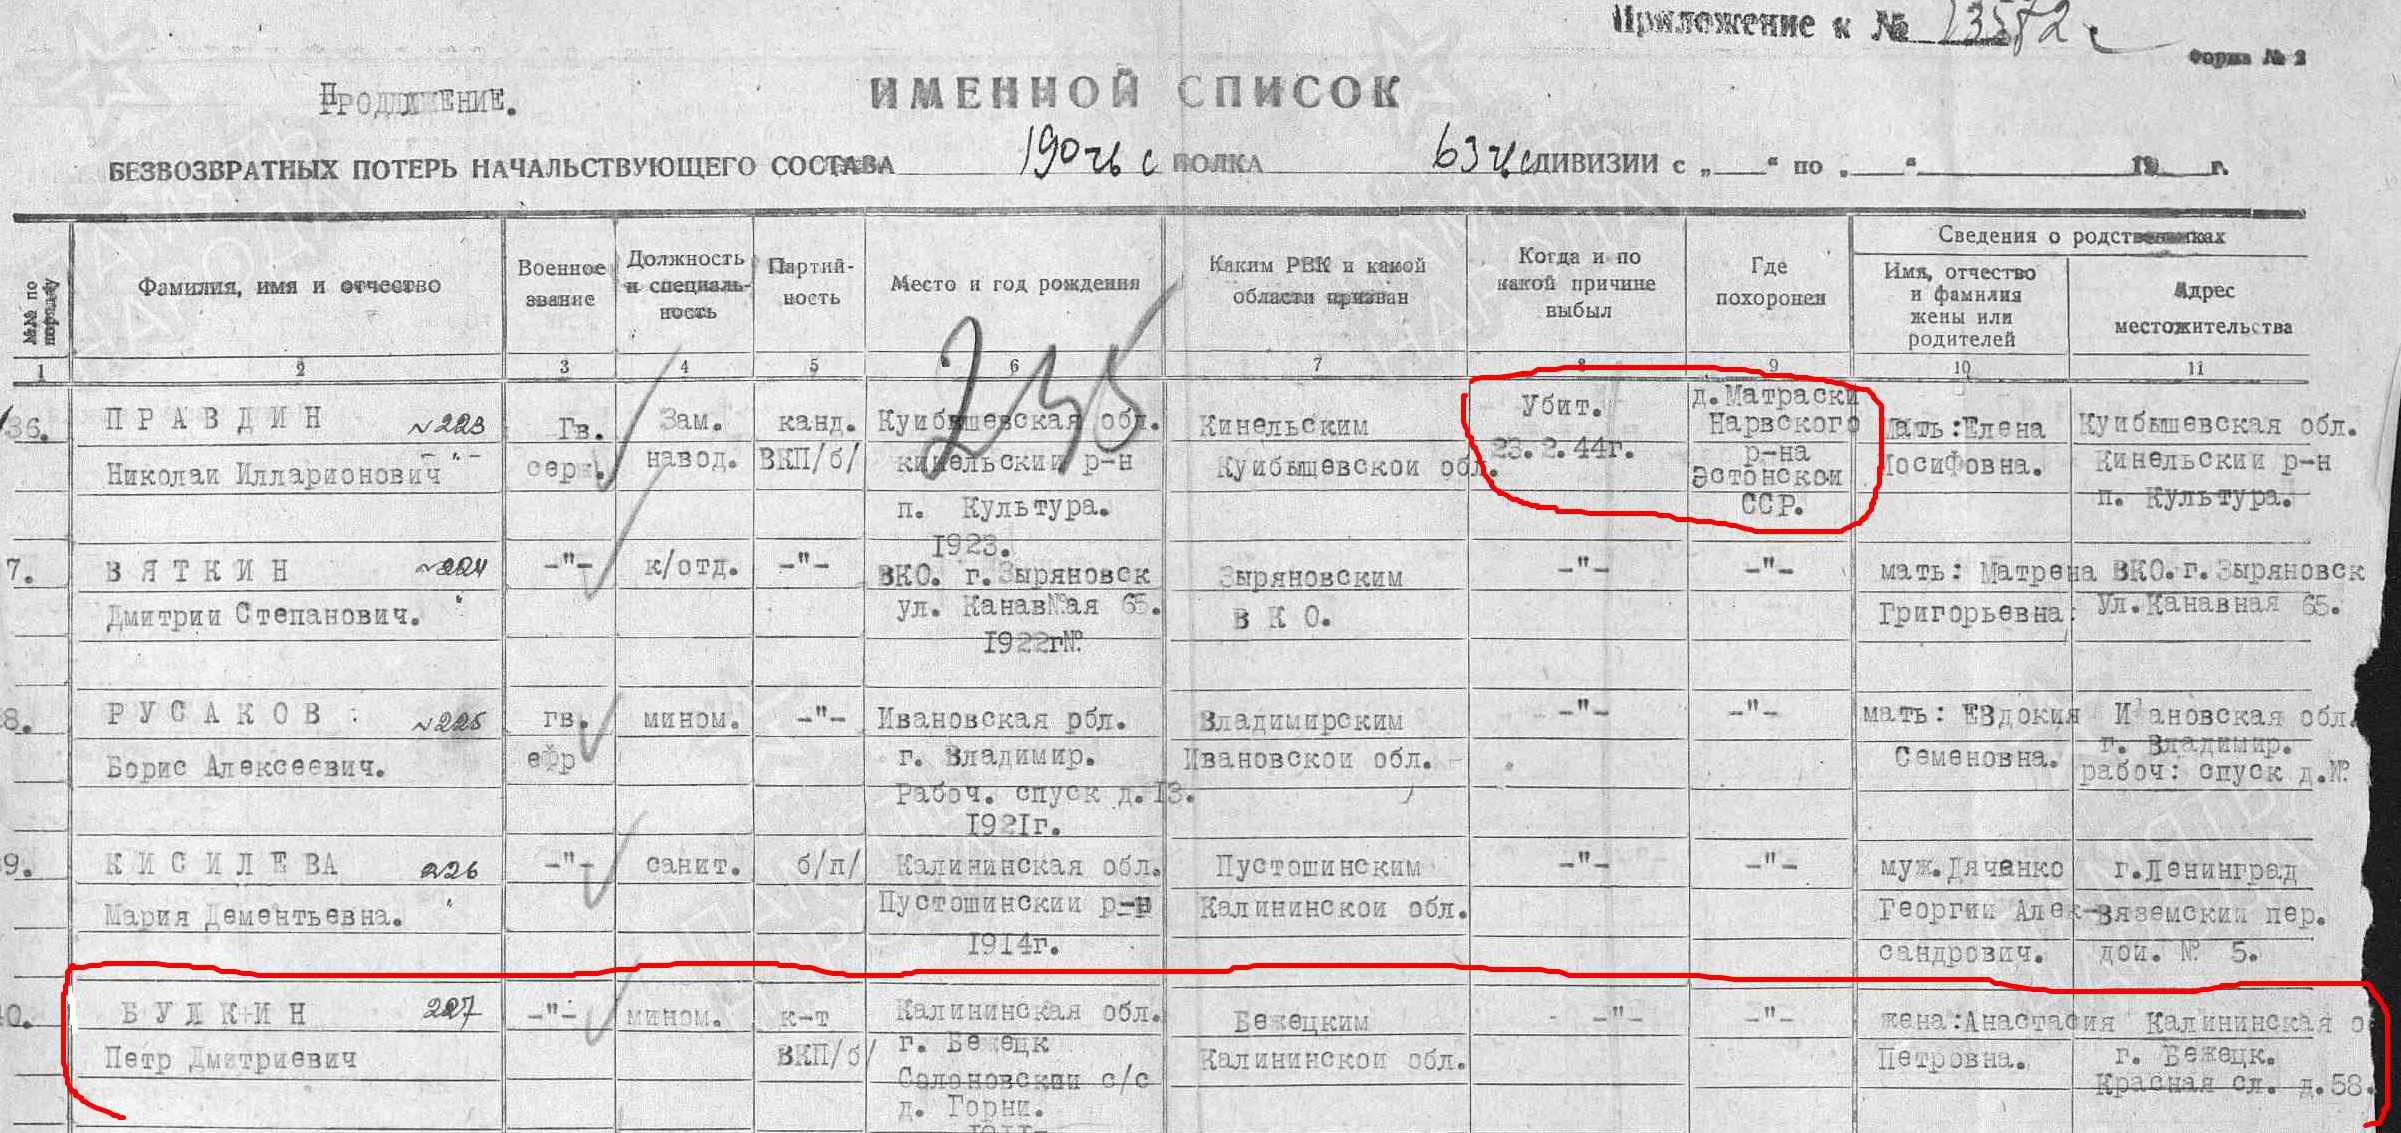 Приложение к №
Форма № 2
Продлжение.
ИМЕННОЙ СПИСОК
БЕЗВОЗВРАТНЫХ ПОТЕРЬ НАЧАЛЬСТВУЮЩЕГО СОСТАВА 190 гв с ПОЛКА 63 гв с ДИВИЗИИ с „ “ по „ “ 19 г.
№№ по порядку
Фамилия, имя и отчество
Военное звание
Должность и специальность
Партий-
ность
Место и год рождения
Каким РВК и какой
области призван
Когда и по
какой причине
выбыл
Где
похоронен
Сведения о родственниках
Имя, отчество
и фамилия
жены или
родителей
Адрес
местожительства
1 2 3 4 5 6 7 8 9 10 11
245
36. ПРАВДИН №223
Николаи Илларионович -"-
Гв.
серж.
Зам.
навод.
канд.
ВКП/б/
Куибышевская обл.
кинельскии р-н
п. Культура.
1923.
Кинельским
Куибышевскои обл.
Убит.
23.2.44г.
д.Матраски
Нарвского
р-на
Эстонскои
ССР.
мать:Елена
Иосифовна.
Куибышевская обл.
Кинельскии р-н
п. Культура.
7. ВЯТКИН №224
Дмитрии Степанович. "
-"-
к/отд.
-"-
ВКО. г. Зыряновск
ул. Канав№ая 65.
1922г№.
Зыряновским
В К О.
-"-
-"-
мать: Матрена
Григорьевна.
ВКО.г.Зыряновск
Ул.Канавная 65.
8. РУСАКОВ . №225
Борис Алексеевич.
гв.
ефр
мином.
-"-
Ивановская рбл.
г. Владимир.
Рабоч. спуск д.13.
1921г.
Владимирским
Ивановскои обл.
-"-
-"-
мать: ЕВдокия
Семеновна.
И'ановская обл.
г. Владимир.
рабоч: спуск д.№
9. КИСИЛЕВА 226
Мария Дементьевна. "
-"-
санит.
б/п/
Калининская обл.
Пустошинскии р-н
1914г.
Пустошинским
Калининскои обл.
-"-
-"-
муж.Дяченко
Георгии Алек-
сандрович.
г.Ленинград
Вяземскии пер.
дои. № 5.
0. БУЛКИН 227
Петр Дмитриевич
-"-
мином.
к-т
ВКП/б/
Калининская обл.
г. Бежецк
Солоновскии с/с
д. Горни.
Бежецким
Калининскои обл.
- -"-
-"-
жена:Анастафия
Петровна.
Калининская о
г. Бежецк.
Красная сл. д.58.